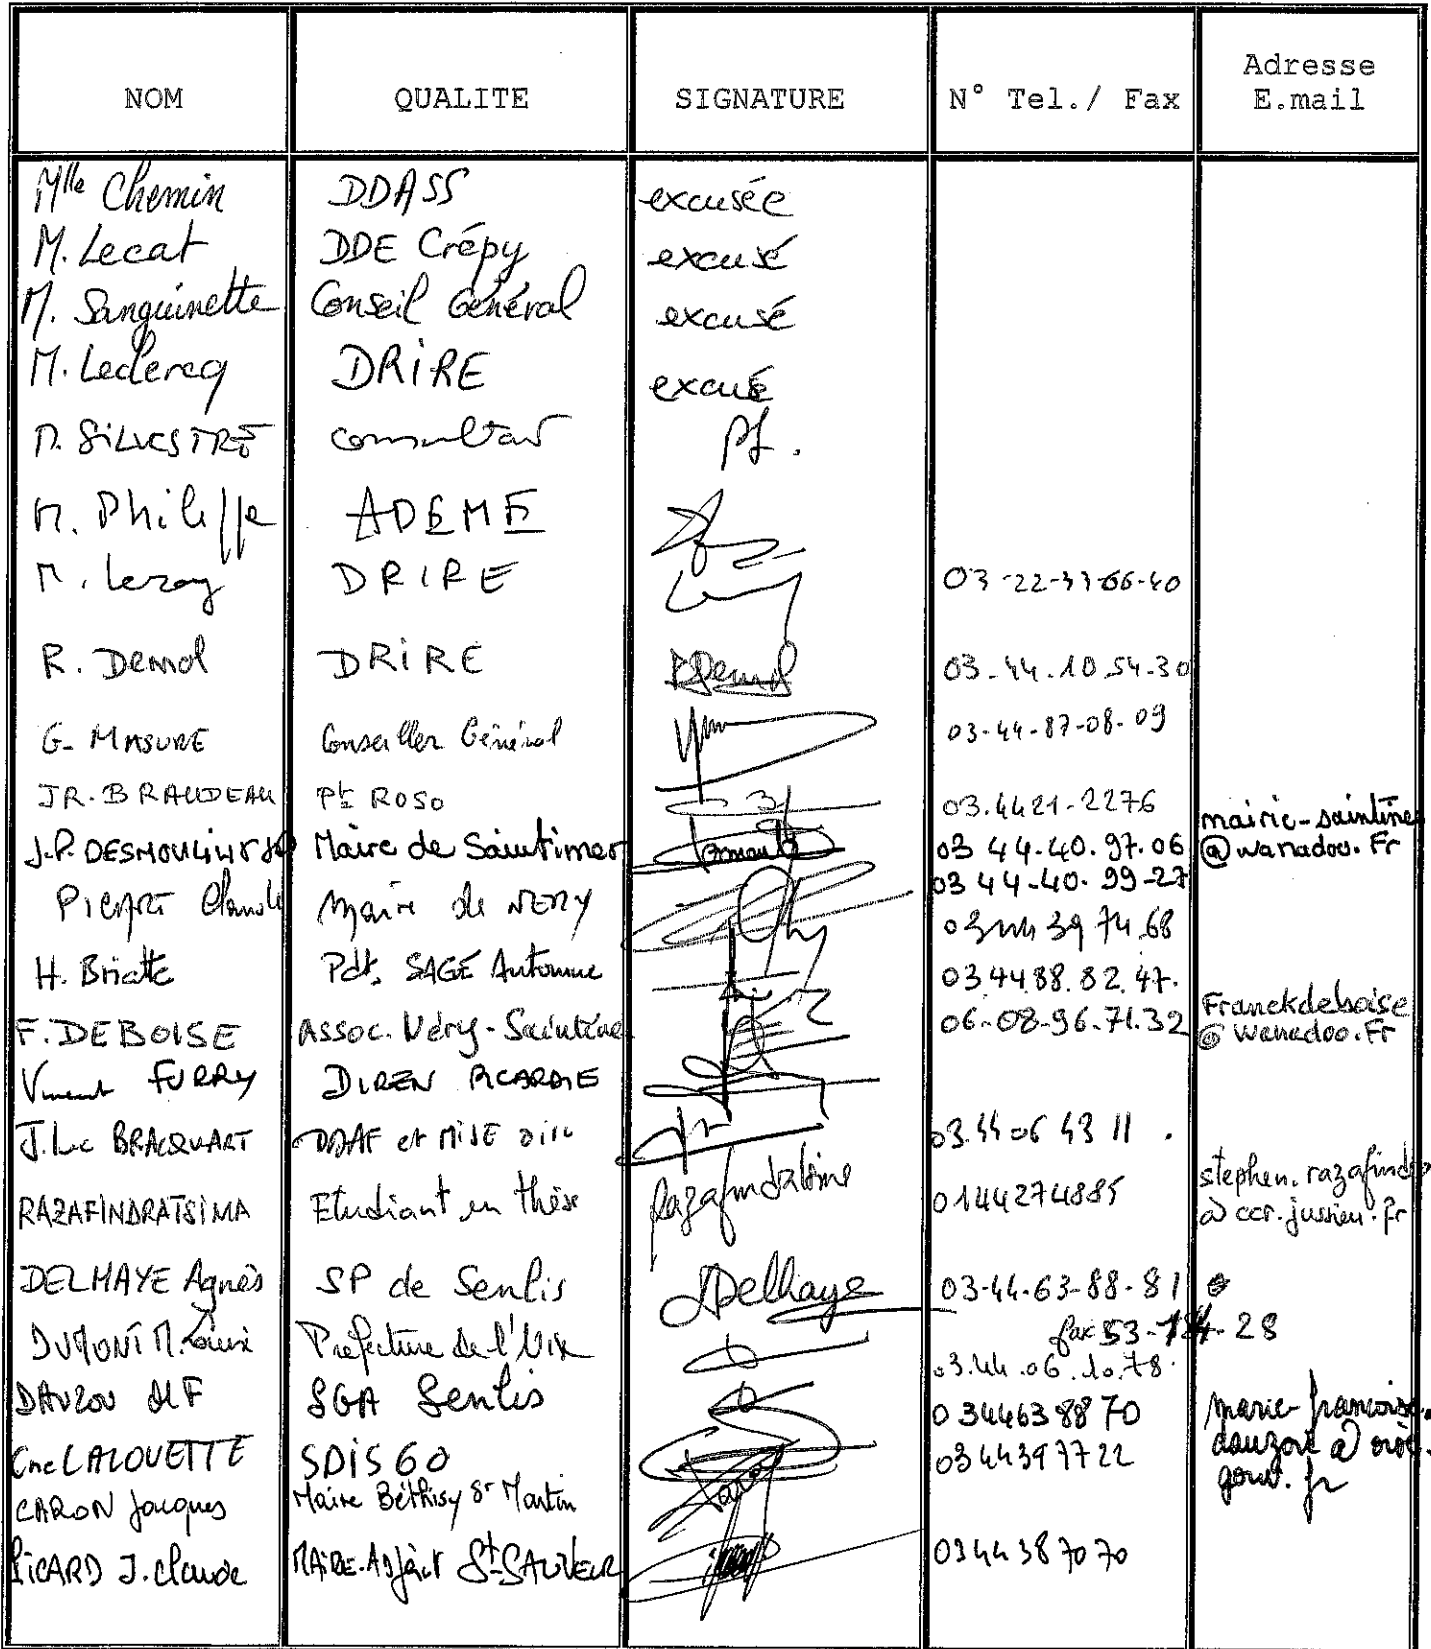 NOM QUALITE SIGNATURE N° Tel./ Fax Adresse E.mail
Mlle Chemin DDASS excusée
M. Lecat DDE Crépy excusé
M. Sanguinette Conseil Général excusé
M. Leclercq DRiRE excusé
M. SiLVESTRE consultant
M. Philippe ADEME
M. Leroy DRIRE 03-22-33-66-40
R. Demol DRiRE RDemol 03-44.10.54-30
G- MASURE Conseiller Général 03-44-87-08-09
JR. BRAUDEAU Pt ROSO 03.4421-2276
J.P. DESMOULINS Maire de Saintines 03 44-40.97.06 mairie-saintines@wanadoo.Fr
03 44-40. 99-27
PICART Claude Maire de NERY 0344 39 74 68
H. Briatte Pdt, SAGE Automne 03 44 88. 82. 47.
F. DEBOISE Assoc. Néry-Saintines 06-08-96.71.32 Franckdeboise@wanadoo.Fr
Vincent FURRY DIREN PICARDIE
J.Luc BRACQUART DDAF et MISE 03.44 06 43 11 .
RAZAFINDRATSIMA Etudiant en thèse 0144274885 stephen.razafind
@ ccr.jussieu.fr
DELHAYE Agnès SP de Senlis ADelhaye 03-44-63-88-81
fax 53- -28
DUMONT M. Louise Préfecture de l'Oise 03.44.06.10.78.
DAUZOU MF SGA Senlis 0344638870 marie-francoise.
CneLALOUETTE SDIS 60 0344397722 gouv.fr
CARON Jacques Maire Béthisy St Martin
PICARD J.Claude MAIRE-Adjoint St-SAUVEUR 0344387070